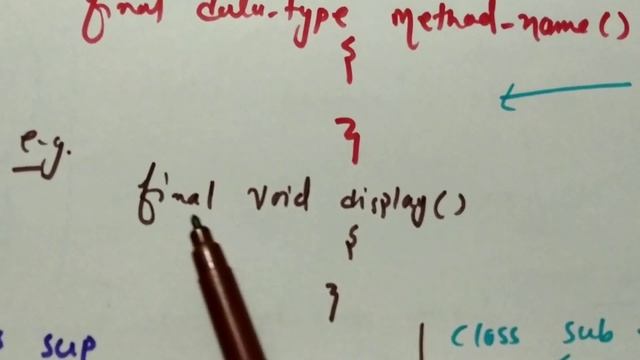 final data-type method-name()
{
}
e-g.
final void display()
{
}
s sup
class sub